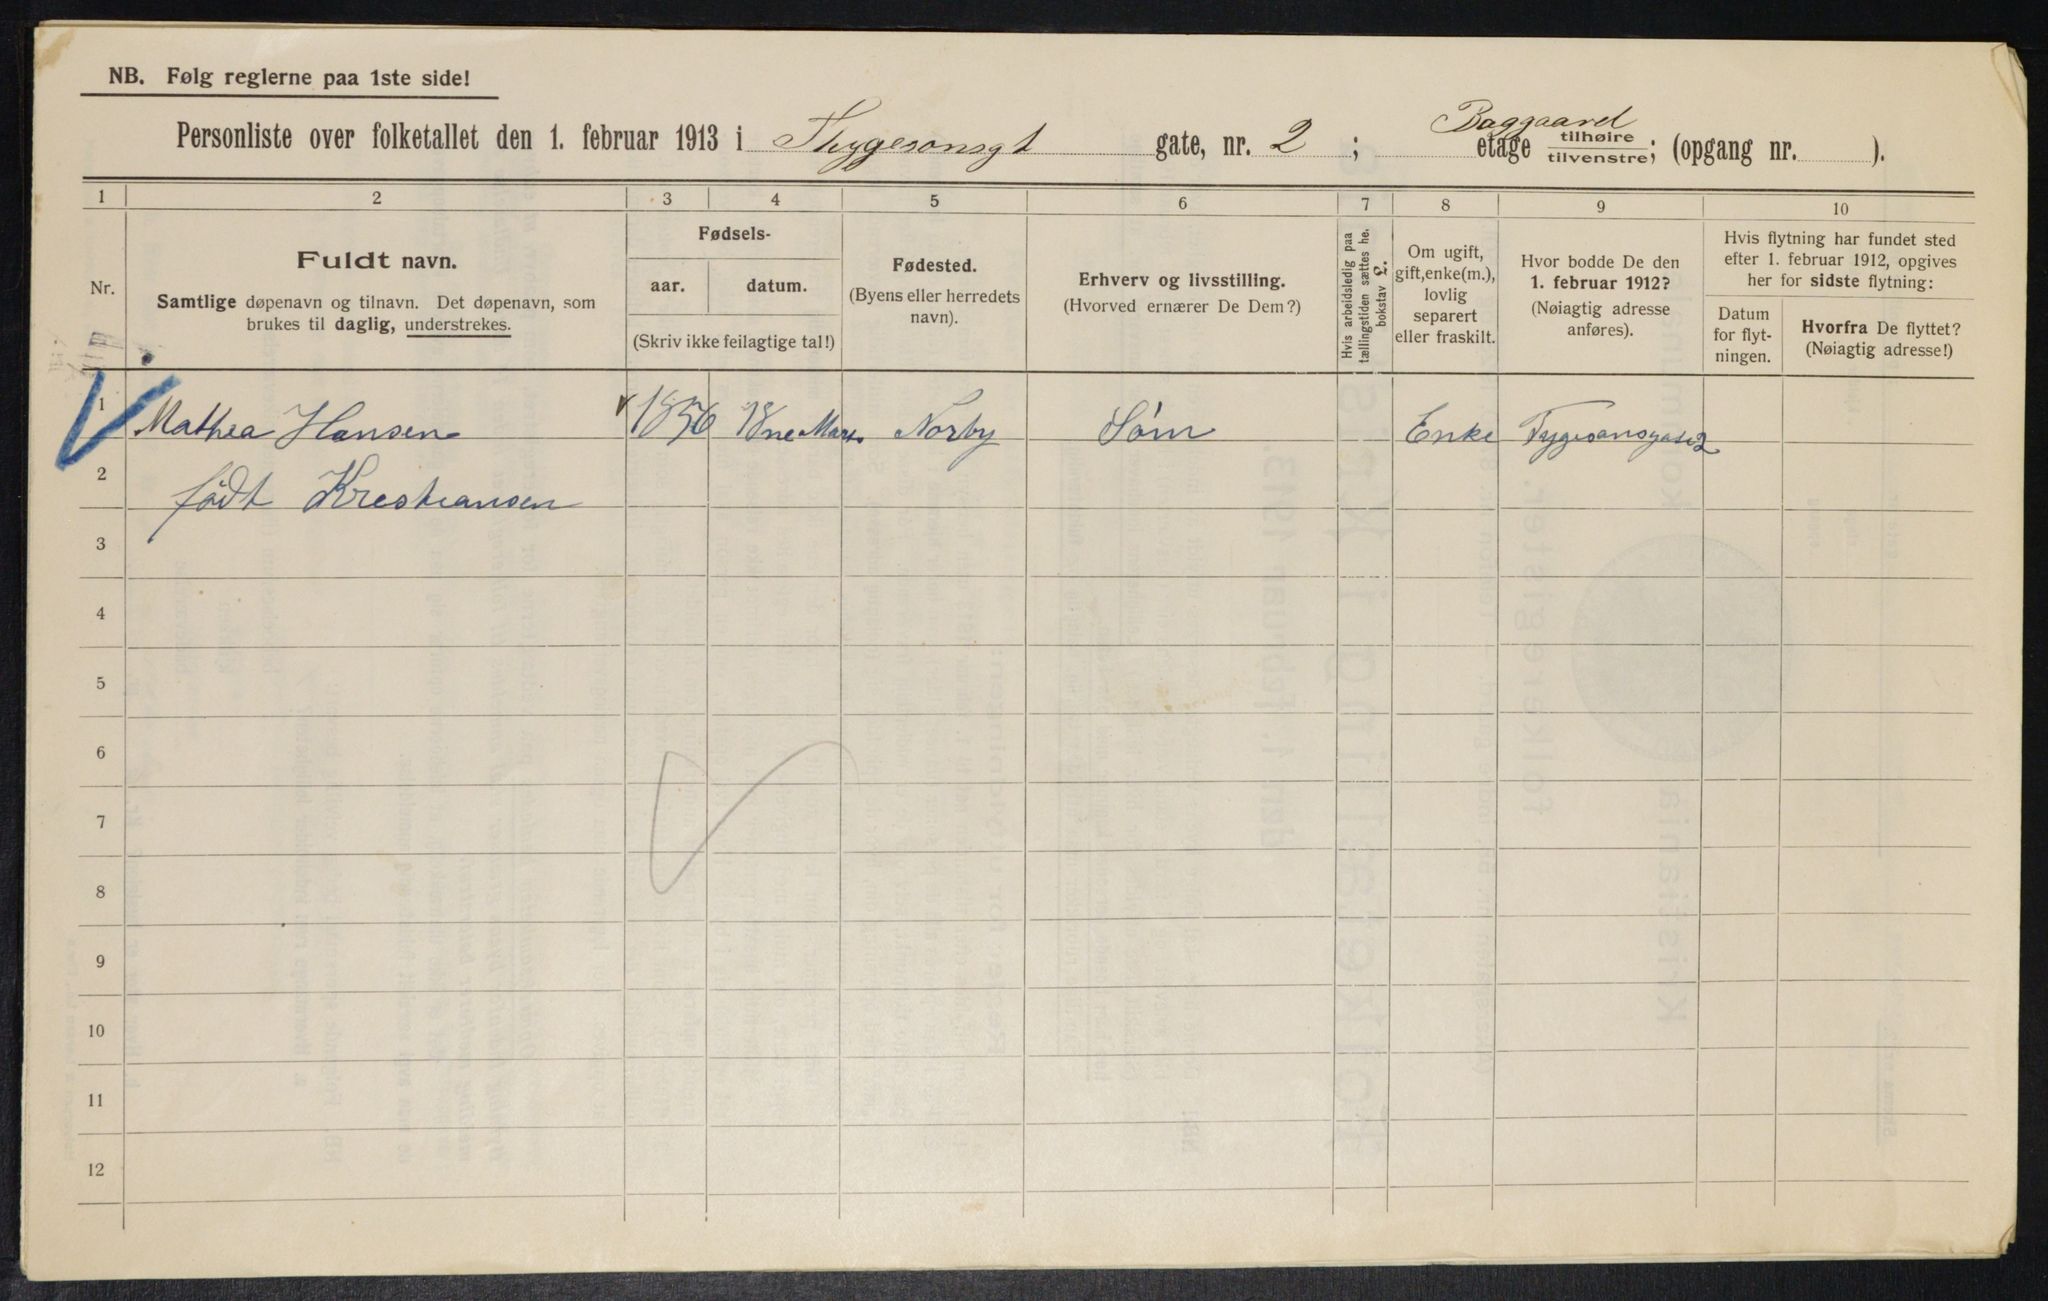 NB. Følg reglerne paa 1ste side!
Personliste over folketallet den 1. februar 1913 i Thygesonsgt gate, nr. 2 ; Baggaard etage tilhøire tilvenstre; (opgang nr. ).
1 2 3 4 5 6 7 8 9 10
Nr.
Fuldt navn.
Samtlige døpenavn og tilnavn. Det døpenavn, som
brukes til daglig, understrekes.
Fødsels-
aar. datum.
(Skriv ikke feilagtige tal!)
Fødested.
(Byens eller herredets
navn).
Erhverv og livsstilling.
(Hvorved ernærer De Dem?)
Hvis arbeidsledig paa
tællingstiden sættes he.
bokstav L.
Om ugift,
gift, enke(m.),
lovlig
separert
eller fraskilt.
Hvor bodde De den
1. februar 1912?
(Nøiagtig adresse
anføres).
Hvis flytning har fundet sted
efter 1. februar 1912, opgives
her for sidste flytning:
Datum
for flyt-
ningen.
Hvorfra De flyttet?
(Nøiagtig adresse!)
1 Mathea Hansen 1856 18ne Mars Norby Søm Enke Tygesonsgase 2
2 født Krestiansen
3
4
5
6
7
8
9
10
11
12